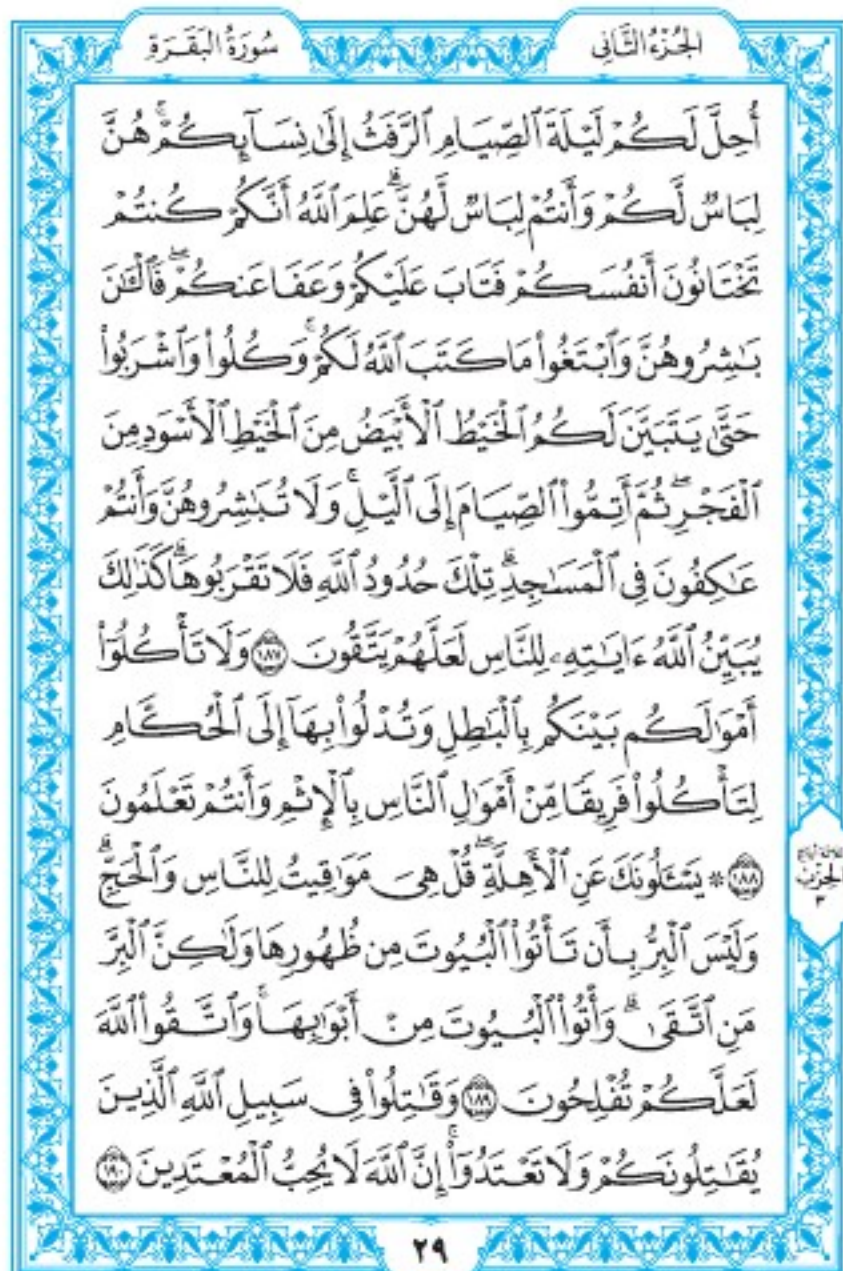 سُورَةُ البَقَرَةِ
الجُزْءُ الثَّانِى
أُحِلَّ لَكُمْ لَيْلَةَ ٱلصِّيَامِ ٱلرَّفَثُ إِلَىٰ نِسَآئِكُمْۚ هُنَّ
لِبَاسٌ لَّكُمْ وَأَنتُمْ لِبَاسٌ لَّهُنَّۗ عَلِمَ ٱللَّهُ أَنَّكُمْ كُنتُمْ
تَخْتَانُونَ أَنفُسَكُمْ فَتَابَ عَلَيْكُمْ وَعَفَا عَنكُمْۖ فَٱلْـَٰٔنَ
بَـٰشِرُوهُنَّ وَٱبْتَغُوا۟ مَا كَتَبَ ٱللَّهُ لَكُمْۚ وَكُلُوا۟ وَٱشْرَبُوا۟
حَتَّىٰ يَتَبَيَّنَ لَكُمُ ٱلْخَيْطُ ٱلْأَبْيَضُ مِنَ ٱلْخَيْطِ ٱلْأَسْوَدِ مِنَ
ٱلْفَجْرِۖ ثُمَّ أَتِمُّوا۟ ٱلصِّيَامَ إِلَى ٱلَّيْلِۚ وَلَا تُبَـٰشِرُوهُنَّ وَأَنتُمْ
عَـٰكِفُونَ فِى ٱلْمَسَـٰجِدِۗ تِلْكَ حُدُودُ ٱللَّهِ فَلَا تَقْرَبُوهَاۗ كَذَٰلِكَ
يُبَيِّنُ ٱللَّهُ ءَايَـٰتِهِۦ لِلنَّاسِ لَعَلَّهُمْ يَتَّقُونَ ١٨٧ وَلَا تَأْكُلُوٓا۟
أَمْوَٰلَكُم بَيْنَكُم بِٱلْبَـٰطِلِ وَتُدْلُوا۟ بِهَآ إِلَى ٱلْحُكَّامِ
لِتَأْكُلُوا۟ فَرِيقًا مِّنْ أَمْوَٰلِ ٱلنَّاسِ بِٱلْإِثْمِ وَأَنتُمْ تَعْلَمُونَ
١٨٨ * يَسْـَٔلُونَكَ عَنِ ٱلْأَهِلَّةِۖ قُلْ هِىَ مَوَٰقِيتُ لِلنَّاسِ وَٱلْحَجِّۗ
وَلَيْسَ ٱلْبِرُّ بِأَن تَأْتُوا۟ ٱلْبُيُوتَ مِن ظُهُورِهَا وَلَـٰكِنَّ ٱلْبِرَّ
مَنِ ٱتَّقَىٰۗ وَأْتُوا۟ ٱلْبُيُوتَ مِنْ أَبْوَٰبِهَاۚ وَٱتَّقُوا۟ ٱللَّهَ
لَعَلَّكُمْ تُفْلِحُونَ ١٨٩ وَقَـٰتِلُوا۟ فِى سَبِيلِ ٱللَّهِ ٱلَّذِينَ
يُقَـٰتِلُونَكُمْ وَلَا تَعْتَدُوٓا۟ۚ إِنَّ ٱللَّهَ لَا يُحِبُّ ٱلْمُعْتَدِينَ ١٩٠
الحِزْب
٣
٢٩